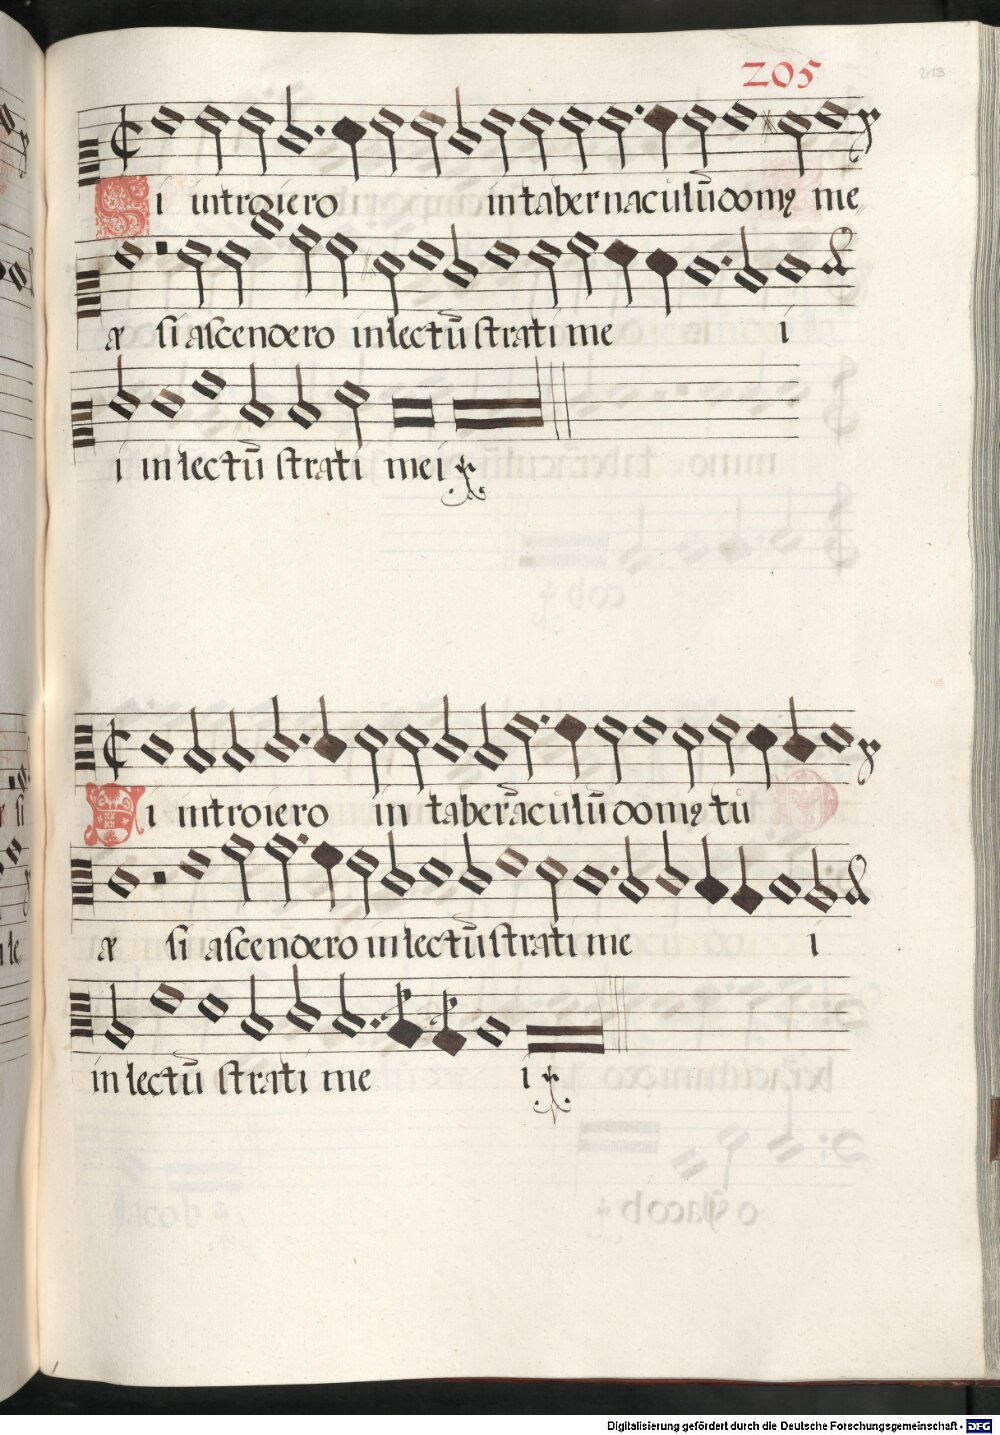 205
213
Si introiero in tabernaculū domꝰ me
æ si ascendero in lectū strati me i
i in lectū strati mei
Si introiero in taber̄aculū domꝰ tu
æ si ascendero in lectū strati me i
in lectū strati me i
Digitalisierung gefördert durch die Deutsche Forschungsgemeinschaft - DFG